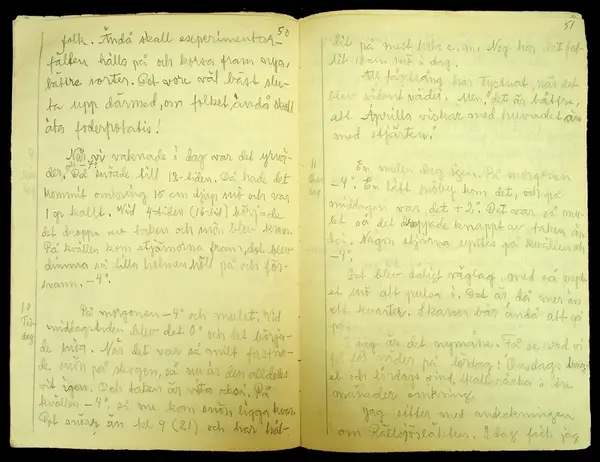 50
folk. Ändå skall experimenter-
fälten hålla på och korsa fram nya,
bättre sorter. Det vore väl bäst slu-
ta upp därmed, om folket ändå skall
äta foderpotatis!
9
När vi vaknade i dag var det yrvä-
der. Då snöade till 18-tiden. Då hade det
kommit omkring 10 cm djup snö och var
1 gr kallt. Vid 4-tiden (16-tid) började
det droppa av taken och snön blev kram.
På kvällen kom stjärnorna fram, det blev
dimma så lilla holmen höll på och för-
svann. -4°.
10
Tis-
dag
På morgonen -4° och mulet. Vid
middagstiden blev det 0° och det börja-
de snöa. När det var så milt fastna-
de snön på skogen, så nu är den alldeles
vit igen. Och taken är vita också. På
kvällen -4°, så nu kom snön ligga kvar.
Det snöar än kl 9 (21) och har hål-
51
lit på mest hela e.m. Nog har det fal-
lit 5 cm snö i dag.
Att fågelsång har tystnat, när det
blev sådant väder. Men det är bättre,
att Aprilla viskar med huvudet än
med stjärten.
11
En mulen dag igen. På morgonen
-4°. En lätt snöby kom det, och på
middagen var det +2°. Det var så mu-
let så det droppade knappt av taken än-
då. Någon stjärna syntes på kvällen och
-4°.
Det blev dåligt väglag, med så mycket
snö att pulsa i. Det är då mer än
ett kvarter. Skaren bär ändå att gå
på.
I dag är det nymåne. Få se vad vi
få för väder på lördag: Onsdags
och lördags vind, skall räcka i tre
månader omkring.
Jag sitter med anteckningen
om släkten. I dag fick jag